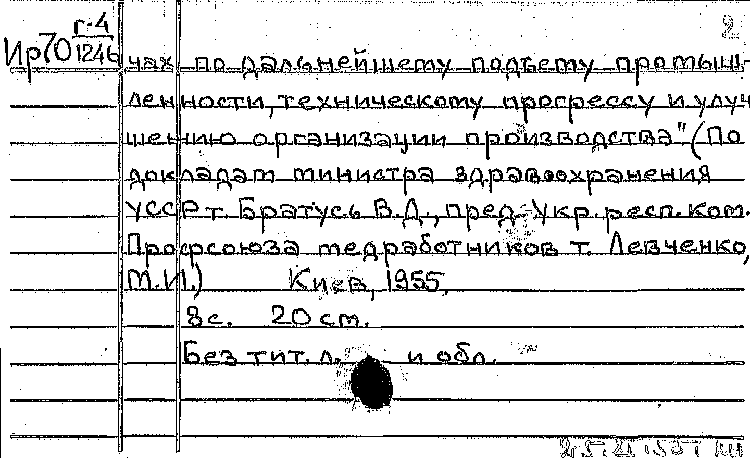 2
Ир70 г-4/1246
чах по дальнейшему подъему промыш-
ленности, техническому прогрессу и улуч
шению организации производства" (По
докладам министра здравоохранения
УССР т. Братусь В.Д., пред. Укр. респ. ком.
Профсоюза медработников т. Левченко,
М.И.) Киев, 1955.
8с. 20 см.
Без тит. л. и обл.